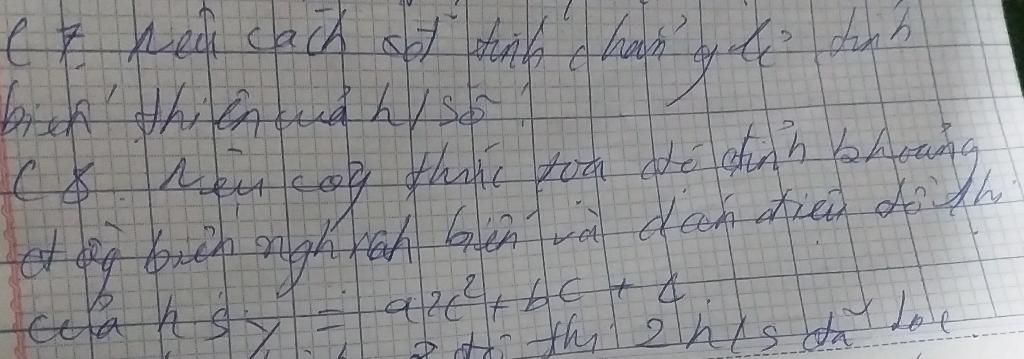 C 7. Nêu cách xét tính chẵn, lẻ, tính
biến thiên của h/số
C 8. Nêu công thức toạ độ đỉnh khoảng
đồng biến nghịch biến và đặc điểm đồ thị
của h s y = ax² + bc + c
đồ thị 2 h/s đã